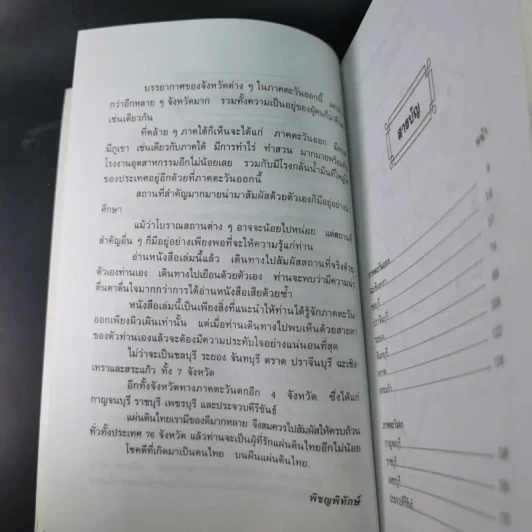 บรรยากาศของจังหวัดต่าง ๆ ในภาคตะวันออกนี้
กว่าอีกหลาย ๆ จังหวัดมาก รวมทั้งความเป็นอยู่ของผู้คนก็น่า
เช่นเดียวกัน
ที่คล้าย ๆ ภาคใต้ก็เห็นจะได้แก่ ภาคตะวันออก
มีภูเขา เช่นเดียวกับภาคใต้ มีการทำไร่ ทำสวน มากมายพร้อม
โรงงานอุตสาหกรรมอีกไม่น้อยเลย รวมกับมีโรงกลั่นน้ำมันที่ใหญ่
ของประเทศอยู่อีกด้วยที่ภาคตะวันออกนี้
สถานที่สำคัญมากมายน่ามาสัมผัสด้วยตัวเองก็มีอยู่อย่าง
ศึกษา
แม้ว่าโบราณสถานต่าง ๆ อาจจะน้อยไปหน่อย แต่สถานที่
สำคัญอื่น ๆ ก็มีอยู่อย่างเพียงพอที่จะให้ความรู้แก่ท่าน
อ่านหนังสือเล่มนี้แล้ว เดินทางไปสัมผัสสถานที่จริงด้วย
ตัวท่านเอง เดินทางไปเยือนด้วยตัวเอง ท่านจะพบว่ามีความน่า
ตื่นตาตื่นใจมากกว่าการได้อ่านหนังสือเสียด้วยซ้ำ
หนังสือเล่มนี้เป็นเพียงสิ่งที่แนะนำให้ท่านได้รู้จักภาคตะวัน-
ออกเพียงผิวเผินเท่านั้น แต่เมื่อท่านเดินทางไปพบเห็นด้วยสายตา
ของตัวท่านเองแล้วจะต้องมีความประทับใจอย่างแน่นอนที่สุด
ไม่ว่าจะเป็นชลบุรี ระยอง จันทบุรี ตราด ปราจีนบุรี ฉะเชิง-
เทราและสระแก้ว ทั้ง 7 จังหวัด
อีกทั้งจังหวัดทางภาคตะวันตกอีก 4 จังหวัด ซึ่งได้แก่
กาญจนบุรี ราชบุรี เพชรบุรี และประจวบคีรีขันธ์
แผ่นดินไทยเรามีของดีมากหลาย จึงสมควรไปสัมผัสให้ครบถ้วน
ทั่วทั้งประเทศ 76 จังหวัด แล้วท่านจะเป็นผู้ที่รักแผ่นดินไทยอีกไม่น้อย
โชคดีที่เกิดมาเป็นคนไทย บนผืนแผ่นดินไทย.
พิชญพิทักษ์
สารบัญ
หน้า
ภาคตะวันออก
ฉะเชิงเทรา
ชลบุรี
ปราจีนบุรี
ระยอง
จันทบุรี
ตราด
สระแก้ว
ภาคตะวันตก
กาญจนบุรี
ราชบุรี
เพชรบุรี
ประจวบคีรีขันธ์